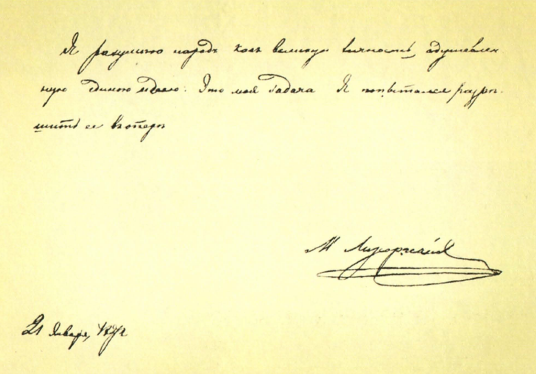 Я разумѣю народъ какъ великую личность, одушевлен
ную единою идеею: Это моя задача. Я попытался разрѣ-
шить ее въ оперѣ
М Мусоргскій
21 Января, 1874